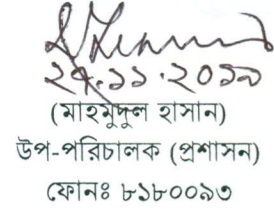 ২৭.১১.২০১৯
(মাহমুদুল হাসান)
উপ-পরিচালক (প্রশাসন)
ফোনঃ ৮১৮০০৯৩